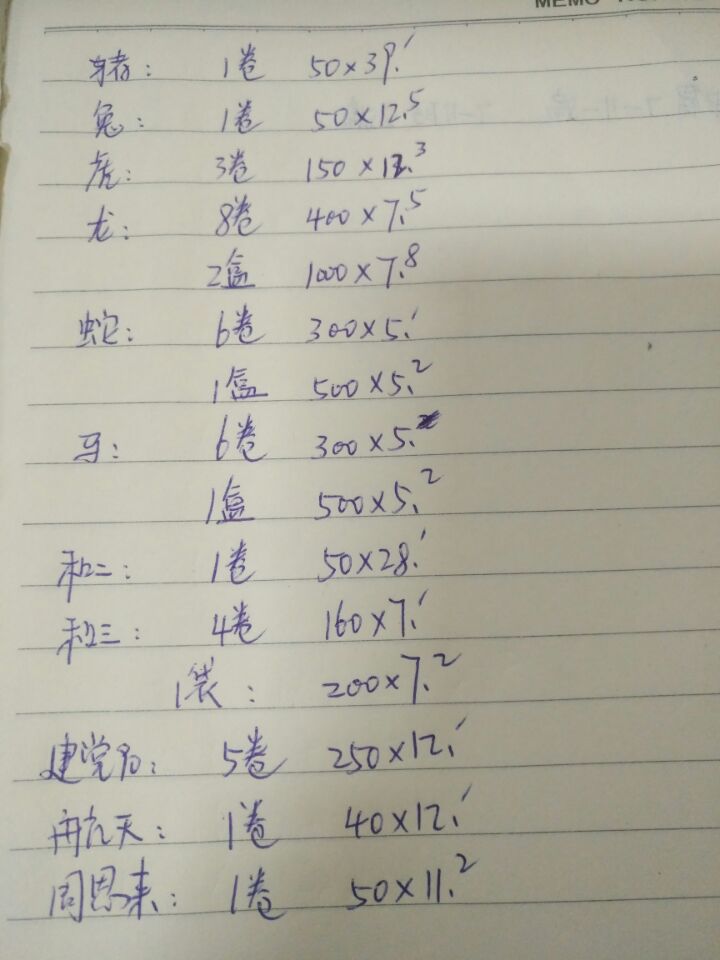 MEMO
猪： 1卷 50×39.1
兔： 1卷 50×12.5
虎： 3卷 150×12.3
龙： 8卷 400×7.5
2盒 1000×7.8
蛇： 6卷 300×5.1
1盒 500×5.2
马： 6卷 300×5.
1盒 500×5.2
和二： 1卷 50×28.1
和三： 4卷 160×7.1
1袋： 200×7.2
建党90： 5卷 250×12.1
航天： 1卷 40×12.1
周恩来： 1卷 50×11.2